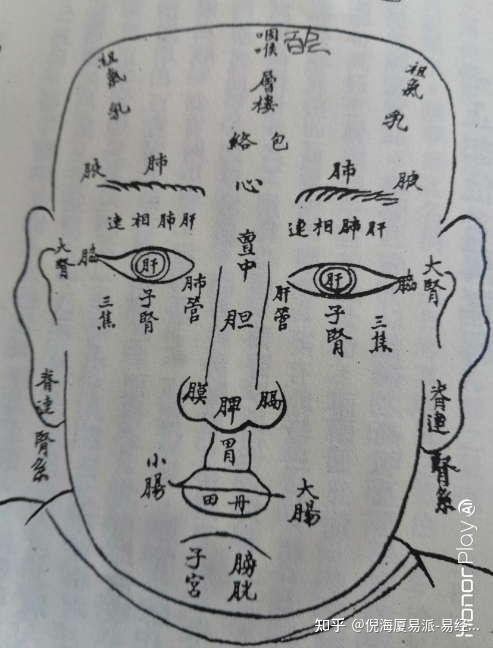 咽喉
祖氣
乳
層樓
祖氣
乳
包絡
腋
肺
心
肺
腋
肝肺相連
肝肺相連
亶中
大腎
腦
肝
肺管
肝管
肝
腦
大腎
三焦
子腎
胆
子腎
三焦
膜
脾
腸
脊連
腎系
脊連
腎系
胃
小腸
丹田
大腸
子宮
膀胱
HONOR Play
知乎 @倪海厦易派-易经...